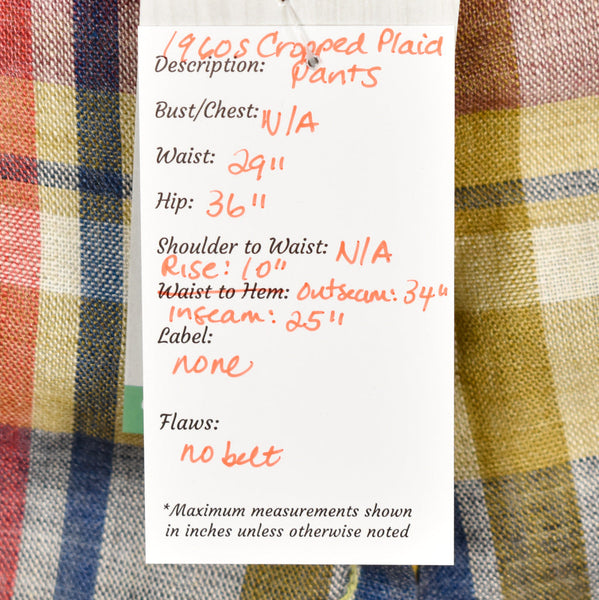 1960s Cropped Plaid
Description: pants
Bust/Chest: N/A
Waist: 29"
Hip: 36"
Shoulder to Waist: N/A
Rise: 10"
Waist to Hem: Outseam: 34"
Inseam: 25"
Label:
none
Flaws:
no belt
*Maximum measurements shown
in inches unless otherwise noted